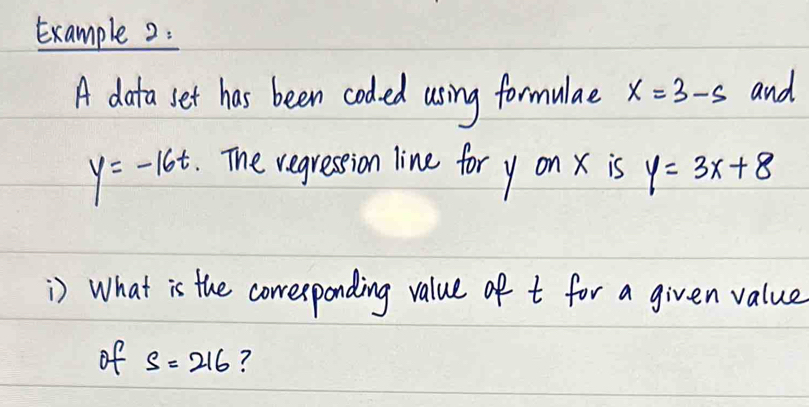 Example 2:
A data set has been coded using formulae x = 3-s and
y = -16t. The regression line for y on x is y = 3x + 8
i) What is the corresponding value of t for a given value
of s = 216?